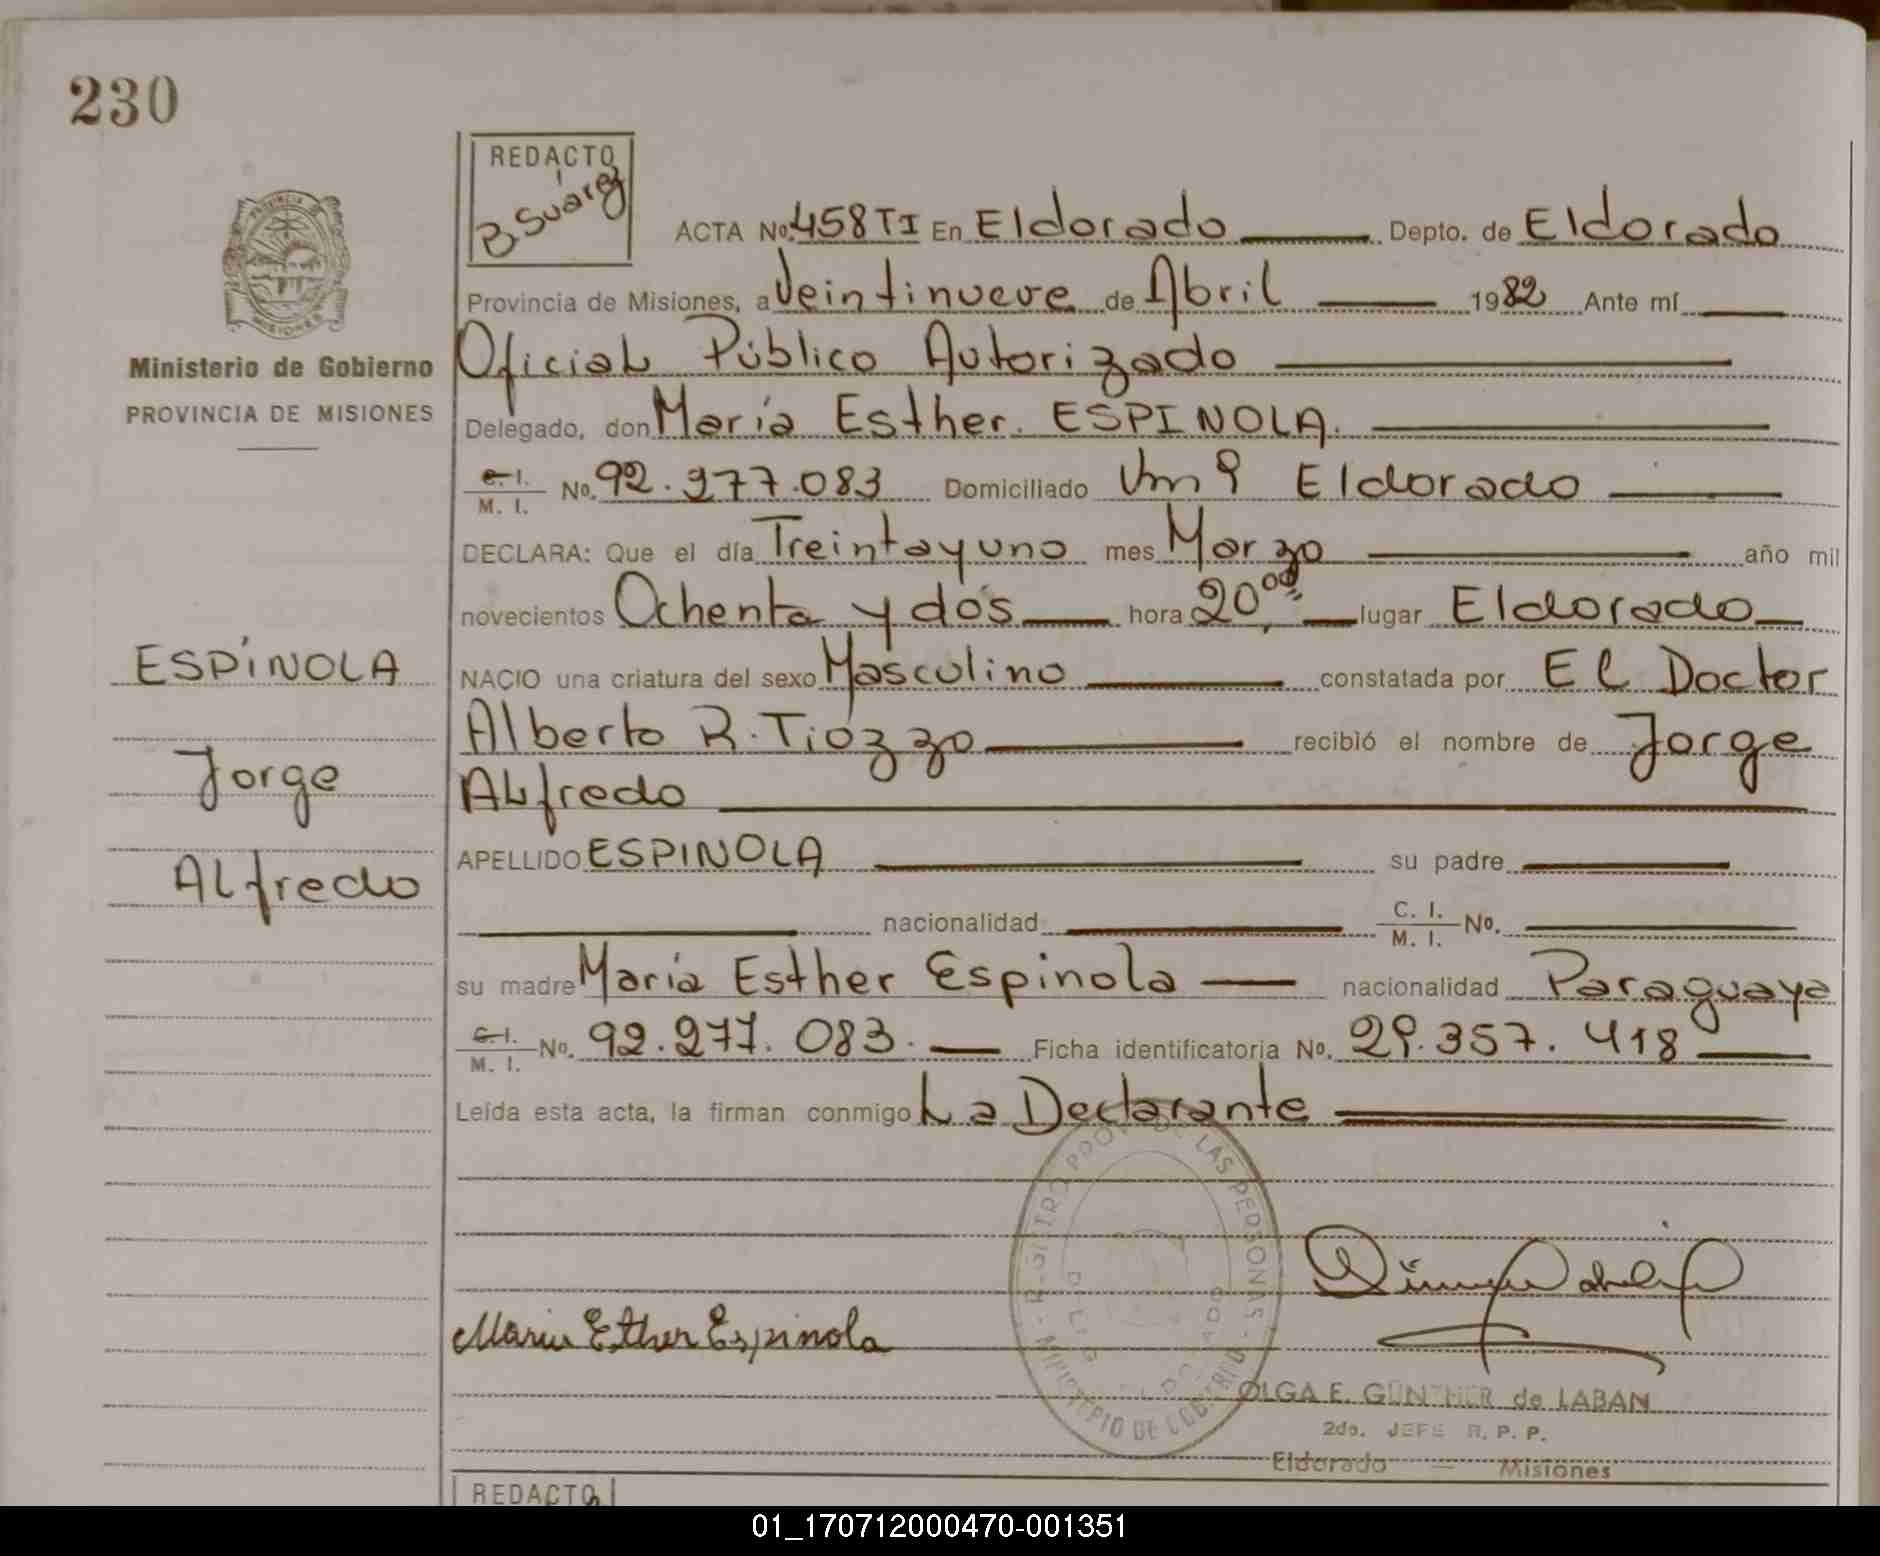 230
REDACTO
B Suárez
ACTA No. 458 TI En Eldorado Depto. de Eldorado
Provincia de Misiones, a Veintinueve de Abril 1982 Ante mí
Oficial Público Autorizado
Delegado, don María Esther. ESPINOLA.
C. I. No. 92.277.083 Domiciliado Km 9 Eldorado
M. I.
DECLARA: Que el día Treintayuno mes Marzo año mil
novecientos Ochenta y dos hora 20,00 lugar Eldorado
NACIO una criatura del sexo Masculino constatada por El Doctor
Alberto R. Tiozzo recibió el nombre de Jorge
Alfredo
APELLIDO ESPINOLA su padre
nacionalidad C. I. No.
M. I.
su madre María Esther Espinola nacionalidad Paraguaya
C. I. No. 92.277.083. Ficha identificatoria No. 29.357.418
M. I.
Leída esta acta, la firman conmigo La Declarante
PROVINCIA DE
MISIONES
Ministerio de Gobierno
PROVINCIA DE MISIONES
ESPÍNOLA
Jorge
Alfredo
REGISTRO PROV. DE LAS PERSONAS - MINISTERIO DE GOBIERNO -
ELDORADO
Maria Esther Espinola
OLGA E. GUNTHER de LABAN
2do. JEFE R. P. P.
Eldorado — Misiones
REDACTO
01_170712000470-001351